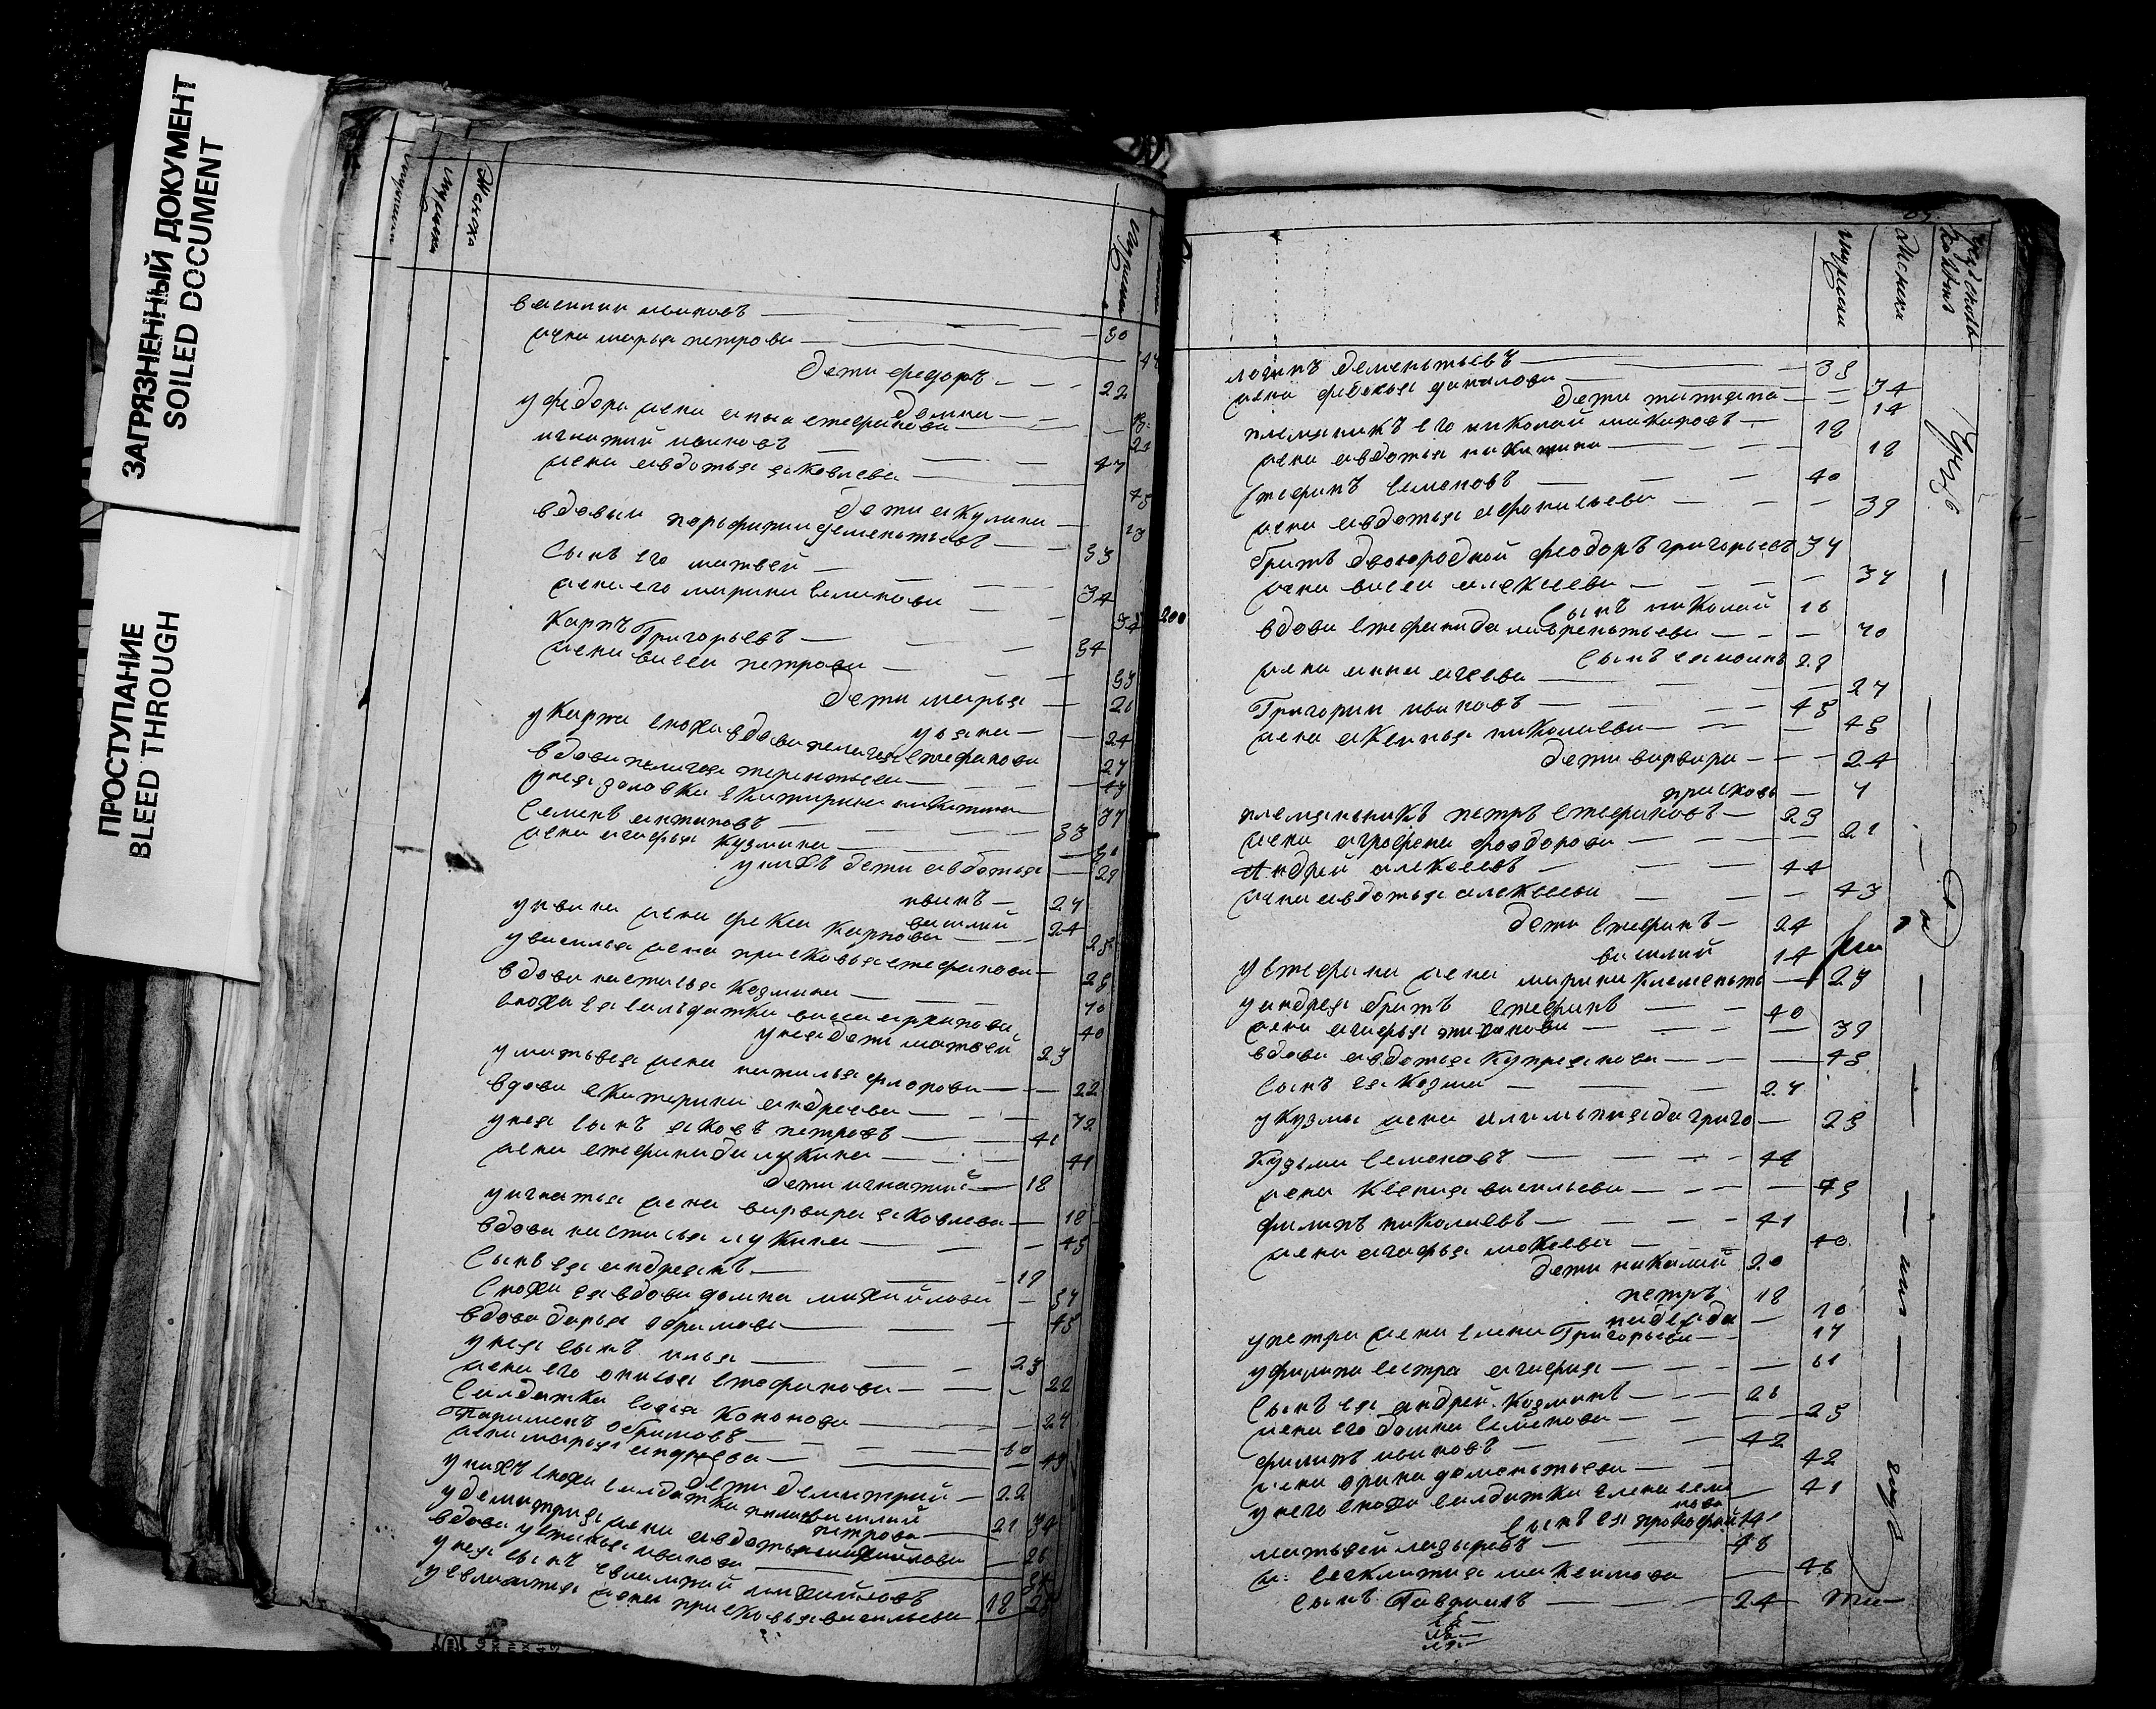 ЗАГРЯЗНЕННЫЙ ДОКУМЕНТ
SOILED DOCUMENT
ПРОСТУПАНИЕ
BLEED THROUGH
василии ивановъ — 50
жена марья петрова —
дети федоръ — 22
домна —
у федора жена анна стефанова — 21
игнатий ивановъ — 47
жена авдотья яковлева — 45
дети акулина — 13
вдовый парфирии дементьевъ — 53
сынъ его матвей — 34
жена его марина семионова
карпъ григорьевъ — 54
жена васса петрова — 53
дети марья — 21
ульяна — 24
у карпа сноха вдова пелагея стефанова 27
вдова пелагея терентьева —
у нея золовка екатирина никитина 37
семенъ антиповъ — 53
жена агафья кузмина —
у нихъ дети авдотья — 29
иванъ — 27
василий 24
у ивана жена фекла карпова — 25
у василья жена прасковья стефанова — 25
вдова настасья козмина — 70
сноха ея салъдатка васса архипова 40
у нея дети матвей 23
у матвея жена наталья фролова — 22
вдова екатерина андреева — 72
у нея сынъ яковъ петровъ — 41
жена стефанида лукина — 41
дети игнатий — 18
у игнатья жена варвара яковлева — 18
вдова настасья лукина — 45
сынъ ея андреянъ — 19
сноха ея вдова домна михайлова — 37
вдова дарья обрамова — 45
у нея сынъ илья — 23
жена его описья стефанова — 22
салдатка софья кононова — 27
парамонъ обрамовъ — 50
жена марья андреева — 49
дети демитрий — 22
василий 21
у нихъ сноха салдатка петрова — 34
у демитрия жена авдотья михайлова — 21
вдова устинья иванова —
у нея сынъ евлампий михайловъ 18
у евлампия жена прасковья васильева
200
логинъ дементьевъ — 35
жена федосья данилова — 34
дети татияна — 14
племяникъ его николай макаровъ — 18
жена авдотья никитина — 18
стефанъ семеновъ — 40
жена авдотья афонасьева — 39
братъ двоюродной феодоръ григорьевъ 37
жена васса алексеева — 37
сынъ николай 16
вдова стефанида лаврентьева — 70
сынъ 29
жена анна агеева — 27
григории ивановъ — 45
жена аксинья николаева — 45
дети варвара — 24
прасковья — 7
племянникъ петръ стефановъ — 23
жена аграфена феодорова — 21
андрей алексеевъ — 44
жена авдотья алексеева — 43
дети стефанъ — 24
василий 14
у стефана жена марина клементь — 23
у андрея братъ стефанъ — 40
жена агафья тиханова — 39
вдова авдотья купреянова — 45
сынъ ея козма — 27
у кузмы жена алимпияда григо — 25
кузьма семеновъ — 44
жена ксения васильева — 45
филипъ николаевъ — 41
жена агафья мокеева — 40
дети николай 20
петръ 18
надежда — 10
у петра жена елена григорьева — 17
у филипа сестра агафия — 61
сынъ ея андрей козминъ — 26
жена его домна семенова — 25
филипъ ивановъ — 42
жена орина дементьева — 42
у него сноха салдатка елена семе — 41
нова
сынъ ея прокофий
матвей лазаревъ — 48
ж. секлитея максимова — 46
сынъ гаврилъ — 24